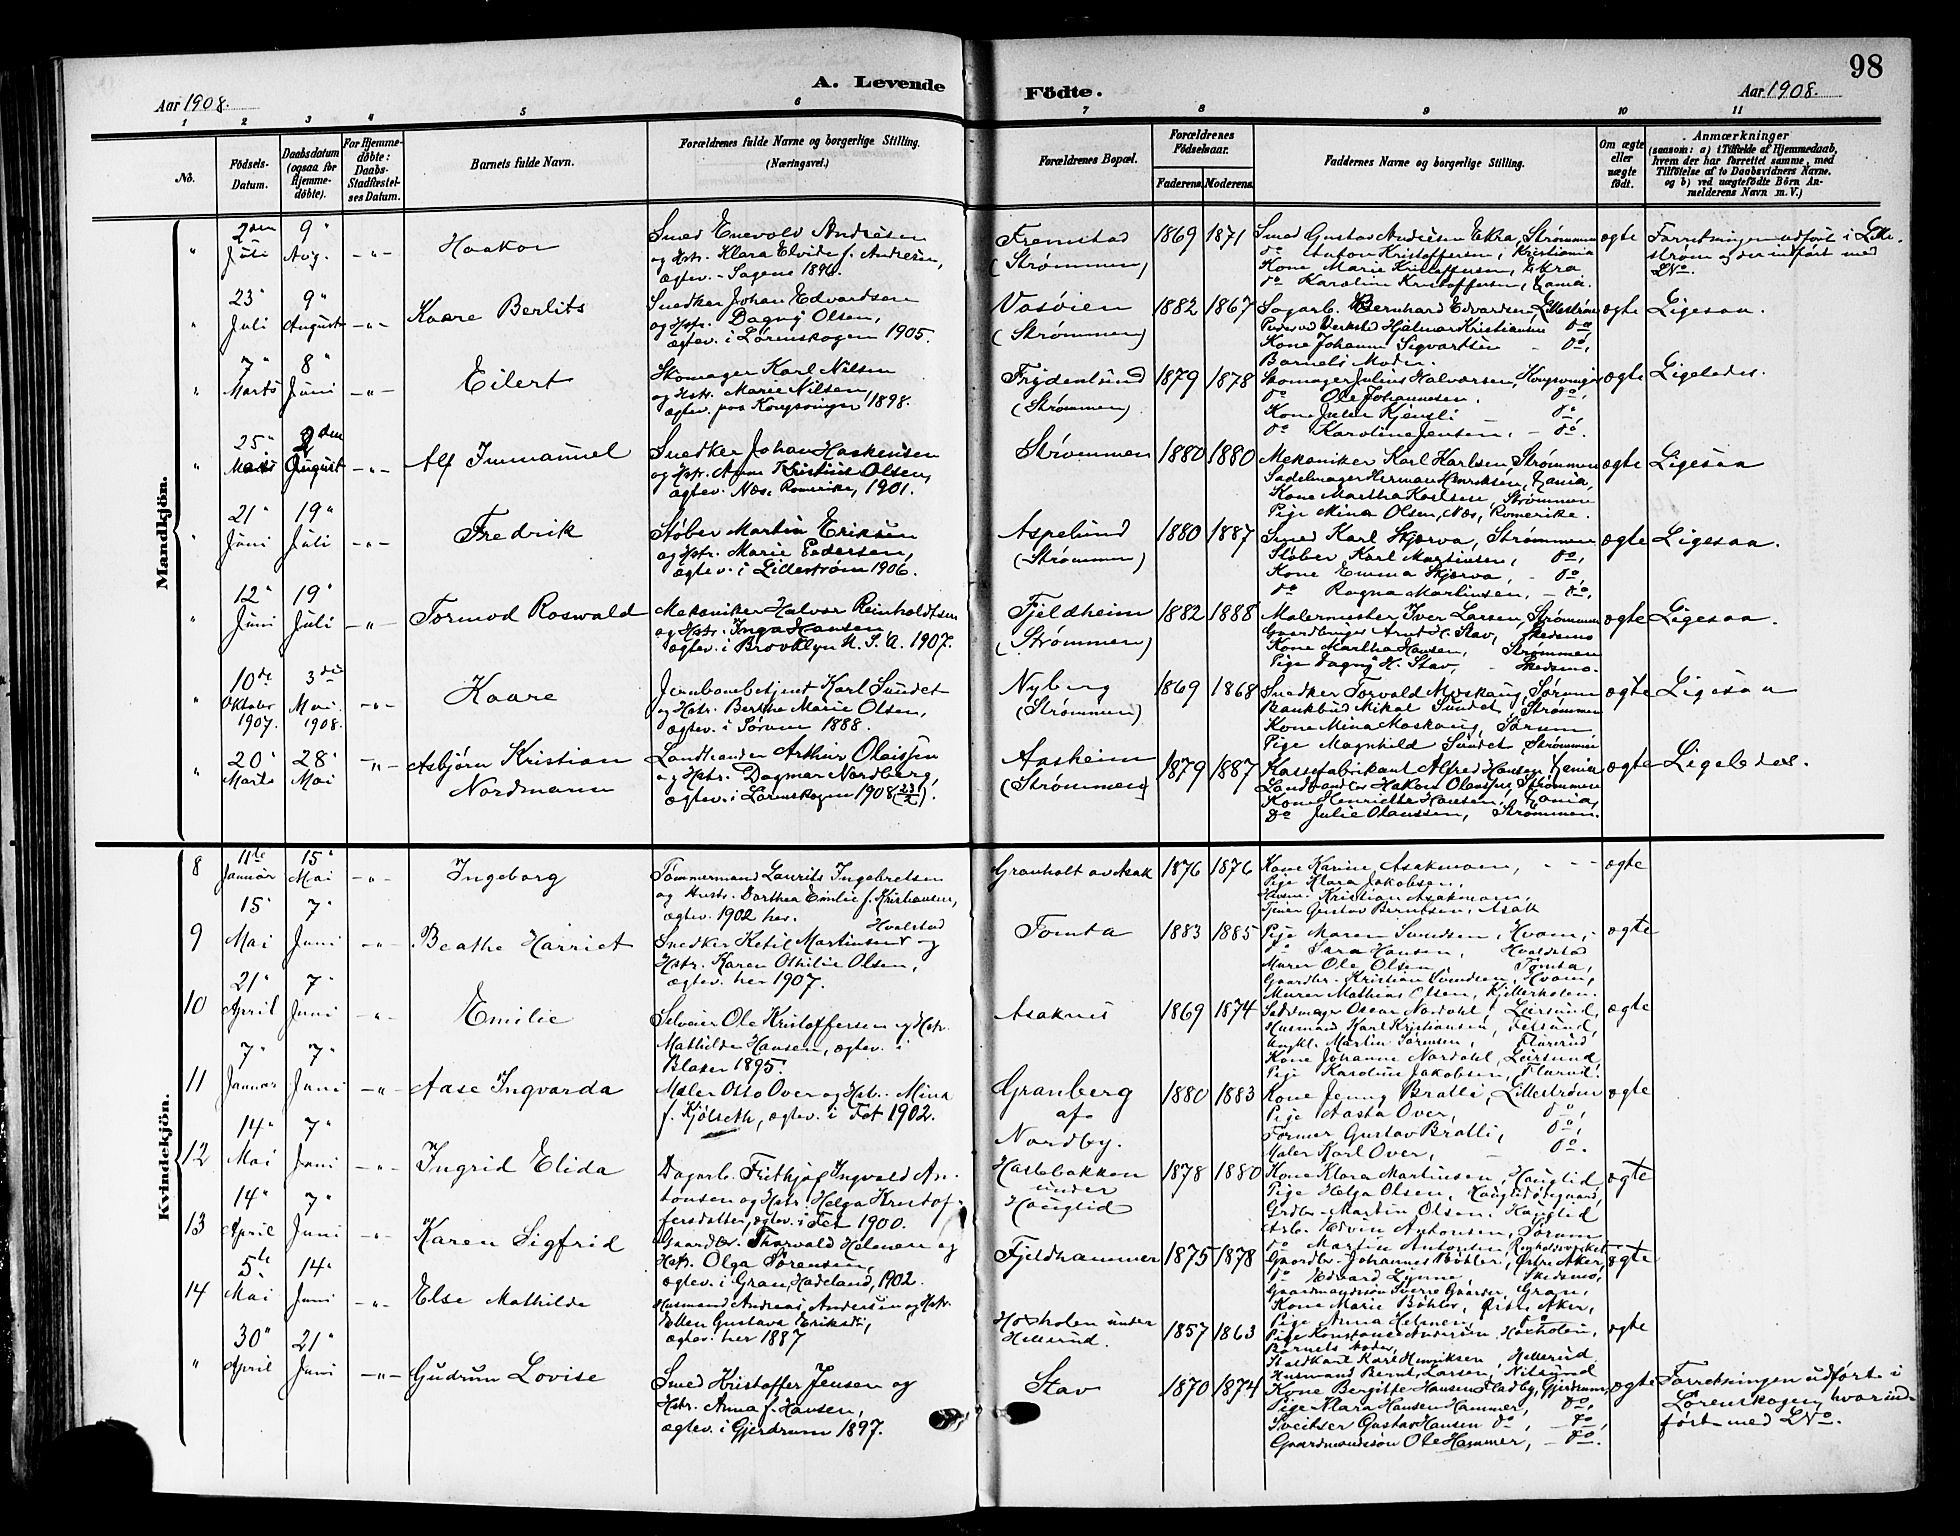 98
A. Levende Födte.
Aar 1908.
Aar 1908.
1 2 3 4 5 6 7 8 9 10 11
No.
Födsels-Datum.
Daabsdatum (ogsaa for Hjemmedöbte).
For Hjemmedöbte: Daabs-Stadfæstelses Datum.
Barnets fulde Navn.
Forældrenes fulde Navne og borgerlige Stilling. (Næringsvei.)
Forældrenes Bopæl.
Forældrenes Födselsaar.
Faderens. Moderens.
Faddernes Navne og borgerlige Stilling.
Om ægte eller uægte födt.
Anmærkninger
(saasom: a) i Tilfælde af Hjemmedaab,
hvem der har forrettet samme, med
Tilföielse af to Daabsvidners Navne.
og b) ved uægtefödte Börn Anmelderens Navn m. V.)
Mandkjön.
" 2den Juli 9" Aug. -"- Haakon
Smed Enevold Andresen
og Hstr. Klara Elvide f. Andresen,
ægtev. - Sagene
Fremstad (Strømmen) 1869 1871
Smed Gustav Andresen Ekra, Strømmen
do Anton Kristoffersen, Kristiania
Kone Marie Kristoffersen, Ekra
do Karoline Kristoffersen, Kania.
ægte
Forretningen udført i Lille-
strøm og der indført med
LNo.
" 23" Juli 9" August -"- Kaare Berlits
Snedker Johan Edvardsen
og Hstr. Dagny Olsen,
ægtev. i Lørenskogen 1905.
Vasøien (Strømmen) 1882 1867
Sagarb. Bernhard Edvardsen, Lillestrøm
Hjalmar Kristiansen do
Kone Johanne Sigvardsen - do,
Barnets Moder.
ægte Ligesaa.
" 7" Marts 8" Juni -"- Eilert
Skomager Karl Nilsen
og Hstr. Marie Nilsen,
ægtev. paa Kongsvinger 1898.
Frydenlund (Strømmen). 1879 1878
Skomager Julius Halvorsen, Kongsvinger
do Ole Johannesen. do,
Kone Julia Kjensli - do,
do Karoline Jensen, - do.
ægte Ligeledes.
" 25" Marts 2den August -"- Alf Immanuel
Snedker Johan Haakensen
og Hstr. Anna Kristine Olsen,
ægtev. Næs Romerike, 1901.
Strømmen 1880 1880
Mekaniker Karl Karlsen, Strømmen
Sadelmager Herman Henriksen, Kania,
Kone Martha Karlsen, Strømmen
Pige Mina Olsen, Næs, Romerike.
ægte Ligesaa
" 21" Juni 19" Juli -"- Fredrik
Støber Martin Eriksen
og Hstr. Marie Pedersen,
ægtev. i Lillestrøm 1906.
Aspelund (Strømmen) 1880 1887
Smed Karl Skjærva, Strømmen
Støber Karl Martinsen, do,
Kone Emma Skjærva, - do,
do Ragna Martinsen, - do,
ægte Ligesaa.
" 12" Juni 19" Juli -"- Tormod Roswald
Mekaniker Halvor Reinholdtsen
og Hstr. Inga Hansen
ægtev. i Brooklyn U. S. A. 1907.
Fjeldheim (Strømmen) 1882 1888
Malermester Iver Larsen, Strømmen
Gaardbruger Arnt H. Stav, Skedsmo
Kone Martha Hansen, Strømmen
Pige Dagny H. Stav, - Skedsmo.
ægte Ligesaa.
" 10de Oktober 1907. 3die Mai. 1908. -"- Kaare
Jernbanebetjent Karl Sundet
og Hstr. Berthe Marie Olsen,
ægtev. i Sørum 1888.
Nyberg (Strømmen) 1869 1868
Snedker Torvald Moskaug, Sørum
Bankbud Mikal Sundet, Strømmen
Kone Mina Moskaug, Sørum
Pige Magnhild Sundet Strømmen
ægte Ligesaa
" 20" Marts 28" Mai -"- Asbjørn Kristian Nordmann
Landhandler Arthur Olaussen
og Hstr. Dagmar Nordberg,
ægtev. i Lørenskogen 1908
Aasheim (Strømmen) 1879 1887
Kassefabrikant Alfred Hansen, Kania
Landhandler Hakon Olaussen, Strømmen
Kone Henriette Hansen, Kania,
Do Julie Olaussen, Strømmen.
ægte Ligeledes.
Kvindekjön.
8 11te Januar 15" Mai -"- Ingeborg
Tømmermand Laurits Ingebretsen
og Hustr. Dorthea Emilie f. Kristiansen,
ægtev. 1902 her.
Granholt av Asak 1876 1876
Kone Karine Asakmoen,
Pige Klara Jakobsen,
Husm. Kristian Asakmoen,
Tjener Gustav Berntsen, Asak
ægte
9 15" Mai 7" Juni -"- Beathe Harriet
Hvalstad
Snedker Ketil Martinsen og
Hstr. Karen Othilie Olsen,
ægtev. her 1907.
Tomta 1883 1885
Pige Maren Svendsen, Hvam,
do Sara Hansen, Hvalstad
Murer Ole Olsen Tomta,
Gaardbr. Kristian Svendsen, Hvam,
Murer Mathias Olsen, Kjellerholen.
ægte
10 21" April 7" Juni -"- Emilie
Ole Kristoffersen og Hstr.
Mathilde Hansen, ægtev. i
Blaker 1895.
Asaknes 1869 1874
Oscar Nordahl, Leirsund,
Husmand Karl Kristiansen, Fetsund,
Ungkl. Martin Sørensen, Flårrud
Kone Johanne Nordahl, Leirsund
Pige Karoline Jakobsen,
ægte
11 7" Januar 7" Juni -"- Aase Ingvarda
Maler Otto Over og Hstr. Mina
f. Kjölseth, ægtev. i Fet 1902.
Granberg af Nordby. 1880 1883
Kone Jenny Bratli, Lillestrøm
Pige Aasta Over, do,
Former Gustav Bratli, do,
Maler Karl Over, - do.
ægte
12 14" Mai 7" Juni -"- Ingrid Elida
Dagarb. Frithjof Ingvald An-
tonsen og Hstr. Helga Kristof-
fersdatter, ægtev. i Fet 1900.
Haslebakken under Hauglid 1878 1880
Kone Klara Martinsen, Hauglid,
Pige Helga Olsen,
Grdbr. Martin Olsen. Hauglid
Arb. Edvin Antonsen, Sørum
do Martin Antonsen,
ægte
13 14" April 7" Juni -"- Karen Sigfrid
Gaardbr. Thorvald Helmen og
Hstr. Olga Sørensen,
ægtev. i Gran, Hadeland, 1902.
Fjeldhammer 1875 1878
Gaardbr. Johannes Böhler, Østre Aker,
do Edvard Lynne, Skedsmo,
Gaardmandssøn Sverre Gaarder, Gran,
Kone Marie Böhler, Østre Aker,
Pige Anna Helmen, do
ægte
14 5te Mai 14" Juni -"- Else Mathilde
Husmand Andreas Andersen og Hstr.
Ellen Gustava Eriksdtr,
ægtev. her 1887
Hoxholen under Hellerud 1857 1863
Pige Konstance Andersen, Hoxholen,
Barnets Moder,
Karl Henriksen, Hellerud
Husmand Bernt Larsen, Nitsund
ægte
" 30" April 21" Juni -"- Gudrun Lovise
Smed Kristoffer Jensen og
Hstr. Anna f. Hansen,
ægtev. i Gjerdrum 1897.
Stav 1870 1874
Kone Bergitte Hansen Fladby, Gjerdrum,
Pige Klara Hansen Hammer, do,
Sveitser Gustav Hansen do, - do,
Gaardmandssøn Ole Hammer, - do.
ægte
Forretningen udført i
Lørenskogen, hvor ind-
ført med LNo.